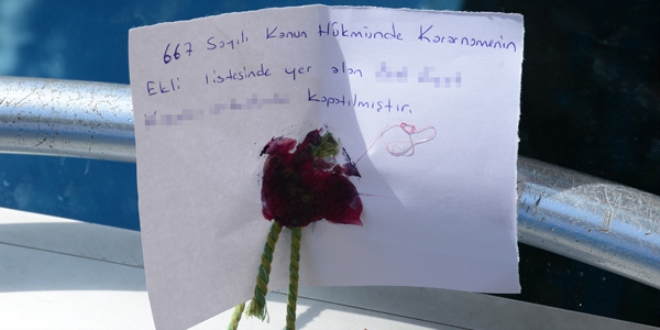 667 Sayılı Kanun Hükmünde Kararnamenin
Ekli listesinde yer alan
kapatılmıştır.